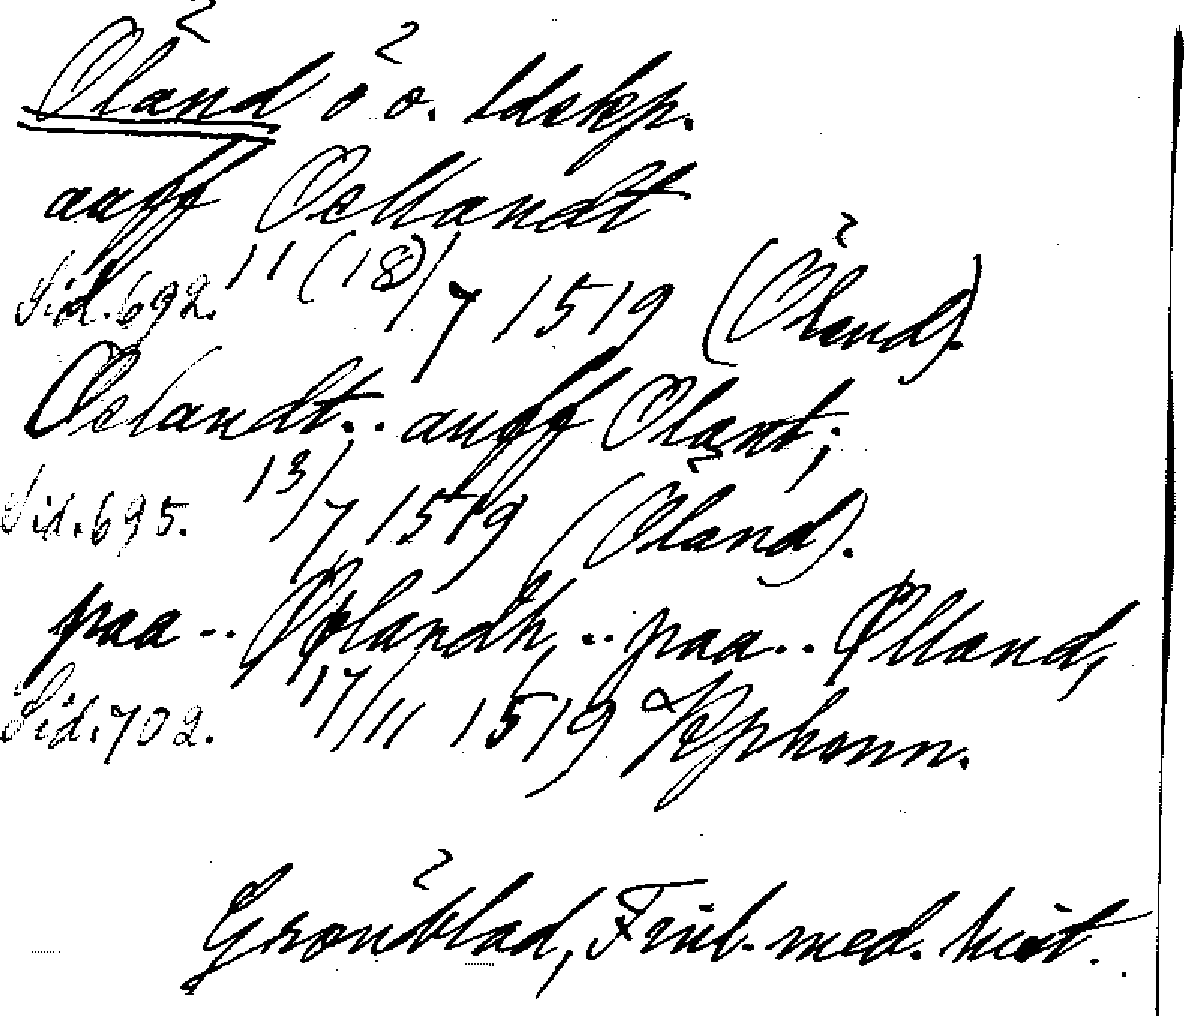 Öland ö o. ldskp.
auff Oellandt
Sid. 692. 11 (18)/7 1519 (Öland).
Oelandt.. auff Olant;
Sid. 695. 13/7 1519 (Öland).
paa .. Øølandh, .. paa .. Ølland,
Sid. 702. 17/11 1519 Kphonn.
Grönblad, Finl. med. hist.